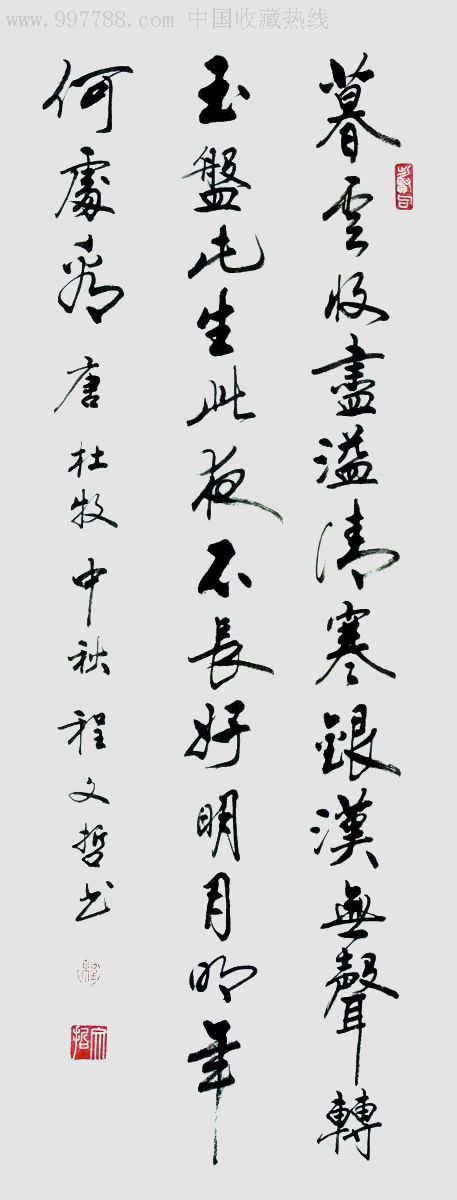 www.997788.com 中国收藏热线
暮云收盡溢清寒銀漢無聲轉
玉盤此生此夜不長好明月明年
何處看 唐 杜牧 中秋 程文哲书